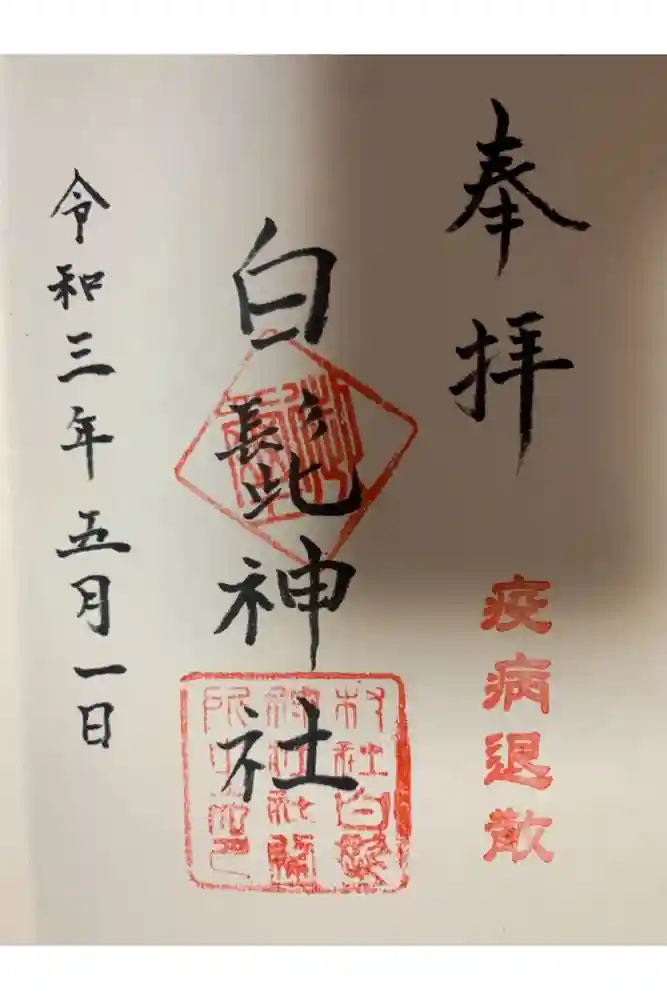 奉拝
疫病退散
白髭神社
令和三年五月一日